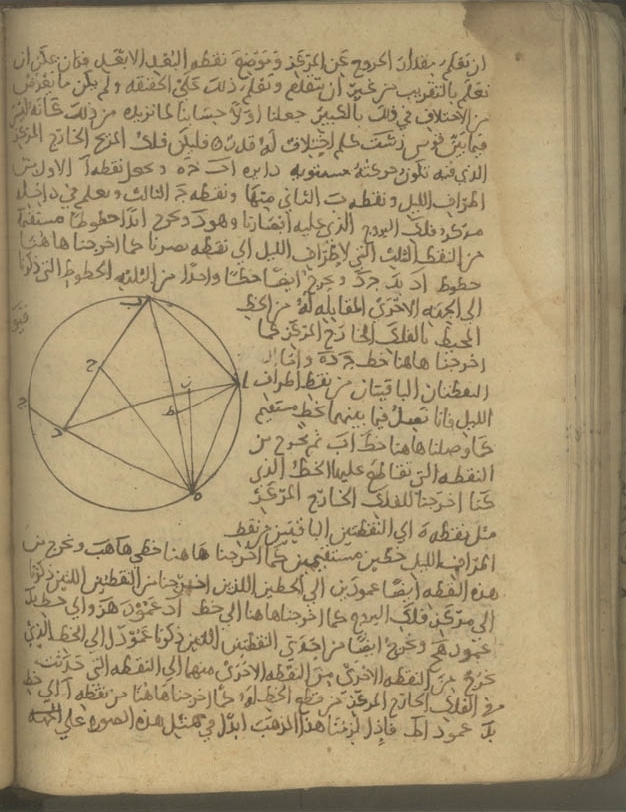 ان نعلم مقدار الخروج عن المركز وموضع نقطه البعد الابعد فان
نعلم بالتقريب من غير ان يتقدم ونعلم ذلك على الحقيقه ولم يكن ما يعرض
من الاختلاف في ذلك بالكبير جعلنا اولا حسابنا لما نريده من ذلك
فيما بين قوس اختلاف له قدر فليكن فلك المريخ الخارج المركز
الذي فيه تكون حركته مستويه دايره ا ب ج ه ونجعل نقطه آ الاولى من
اطراف الليل ونقطه ب الثاني منها ونقطه ج الثالث ونعلم في داخله
مركز فلك البروج الذي عليه ابصارنا وهو د ونخرج ابدا خطوطا مستقيمه
من النقط الثلث التي لاطراف الليل الى نقطه بصرنا كما اخرجنا هاهنا
خطوط اد بد جد ونخرج ايضا خطا واحدا من الثلثه الخطوط التي ذكرنا
الى الجهه الاخرى المقابله له من الخط
المحيط بالفلك الخارج المركز كما
اخرجنا هاهنا خط ج د ه واما
النقطتان الباقيتان من نقط اطراف
الليل فانا نصل فيما بينهما بخط مستقيم
كما وصلنا هاهنا خط اب ثم نخرج من
النقطه التي تقاطع عليها الخط الذي
كنا اخرجنا للفلك الخارج المركز
مثل نقطه ه الى النقطتين الباقيتين من نقط
اطراف الليل خطين مستقيمين كما اخرجنا هاهنا خطي ها هب ونخرج من
هذه النقطه ايضا عمودين الى الخطين اللذين اخرجنا من النقطتين اللتين ذكرنا
الى مركز فلك البروج كما اخرجنا هاهنا الى خط اد عمود هز والى خط بد
عمود هح ونخرج ايضا من احدى النقطتين اللتين ذكرنا عمودا الى الخط الذي
نخرج من النقطه الاخرى منها الى النقطه التي حدثت
في الفلك الخارج المركز من قطع الخط له كما اخرجنا هاهنا من نقطه آ الى خط
به عمود اط فاذا لزمنا هذا المذهب ابدا في تمثيل هذه الصوره على الجهه